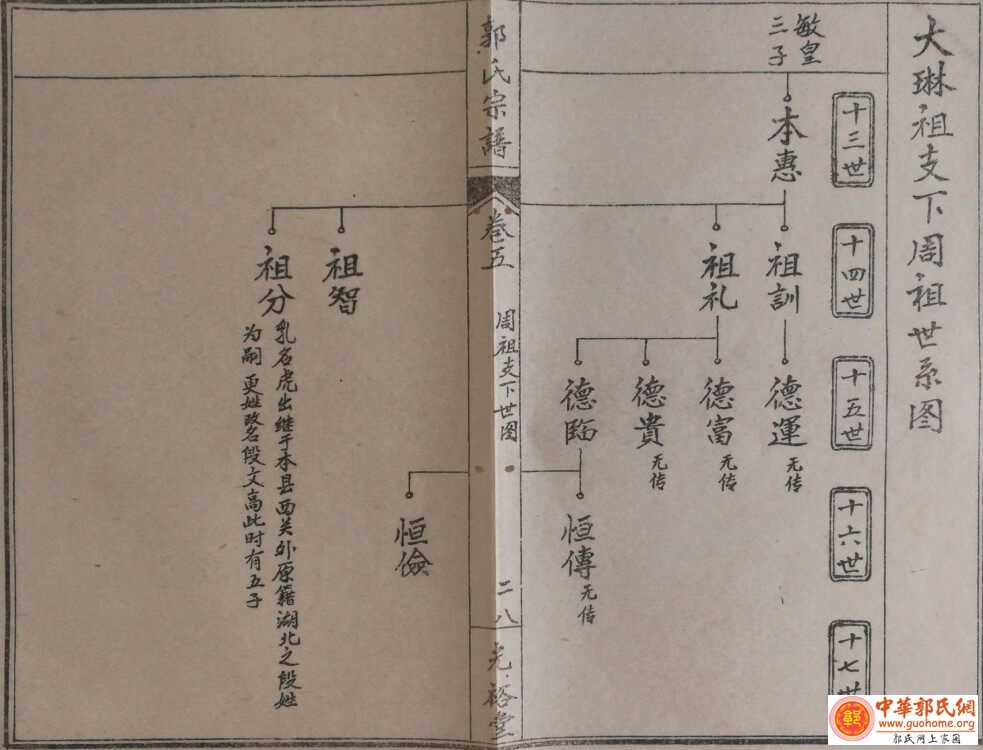 大琳祖支下周祖世系图
十三世
十四世
十五世
十六世
十七世
敏皇
三子
本惠
祖訓
祖礼
德運
无传
德富
无传
德貴
无传
德臨
恒傳
无传
郭氏宗譜
卷五
周祖支下世图
二八
光裕堂
祖智
祖分
乳名虎出继于本县西关外原籍湖北之段姓
为嗣更姓改名段文高此时有五子
恒儉
中華郭氏網
www.guohome.org
郭氏网上家园